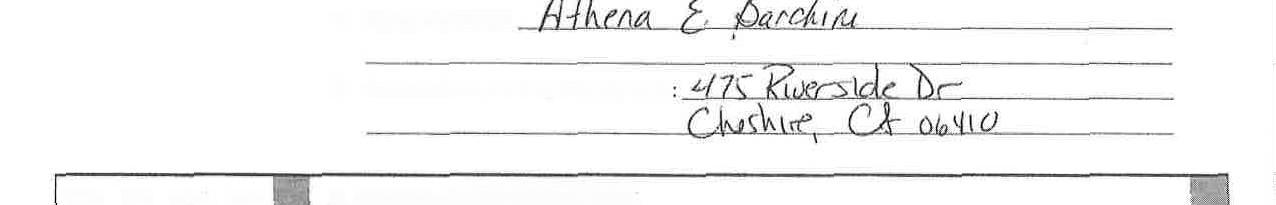 Athena E. Barchini
: 475 Riverside Dr
Cheshire, Ct 06410